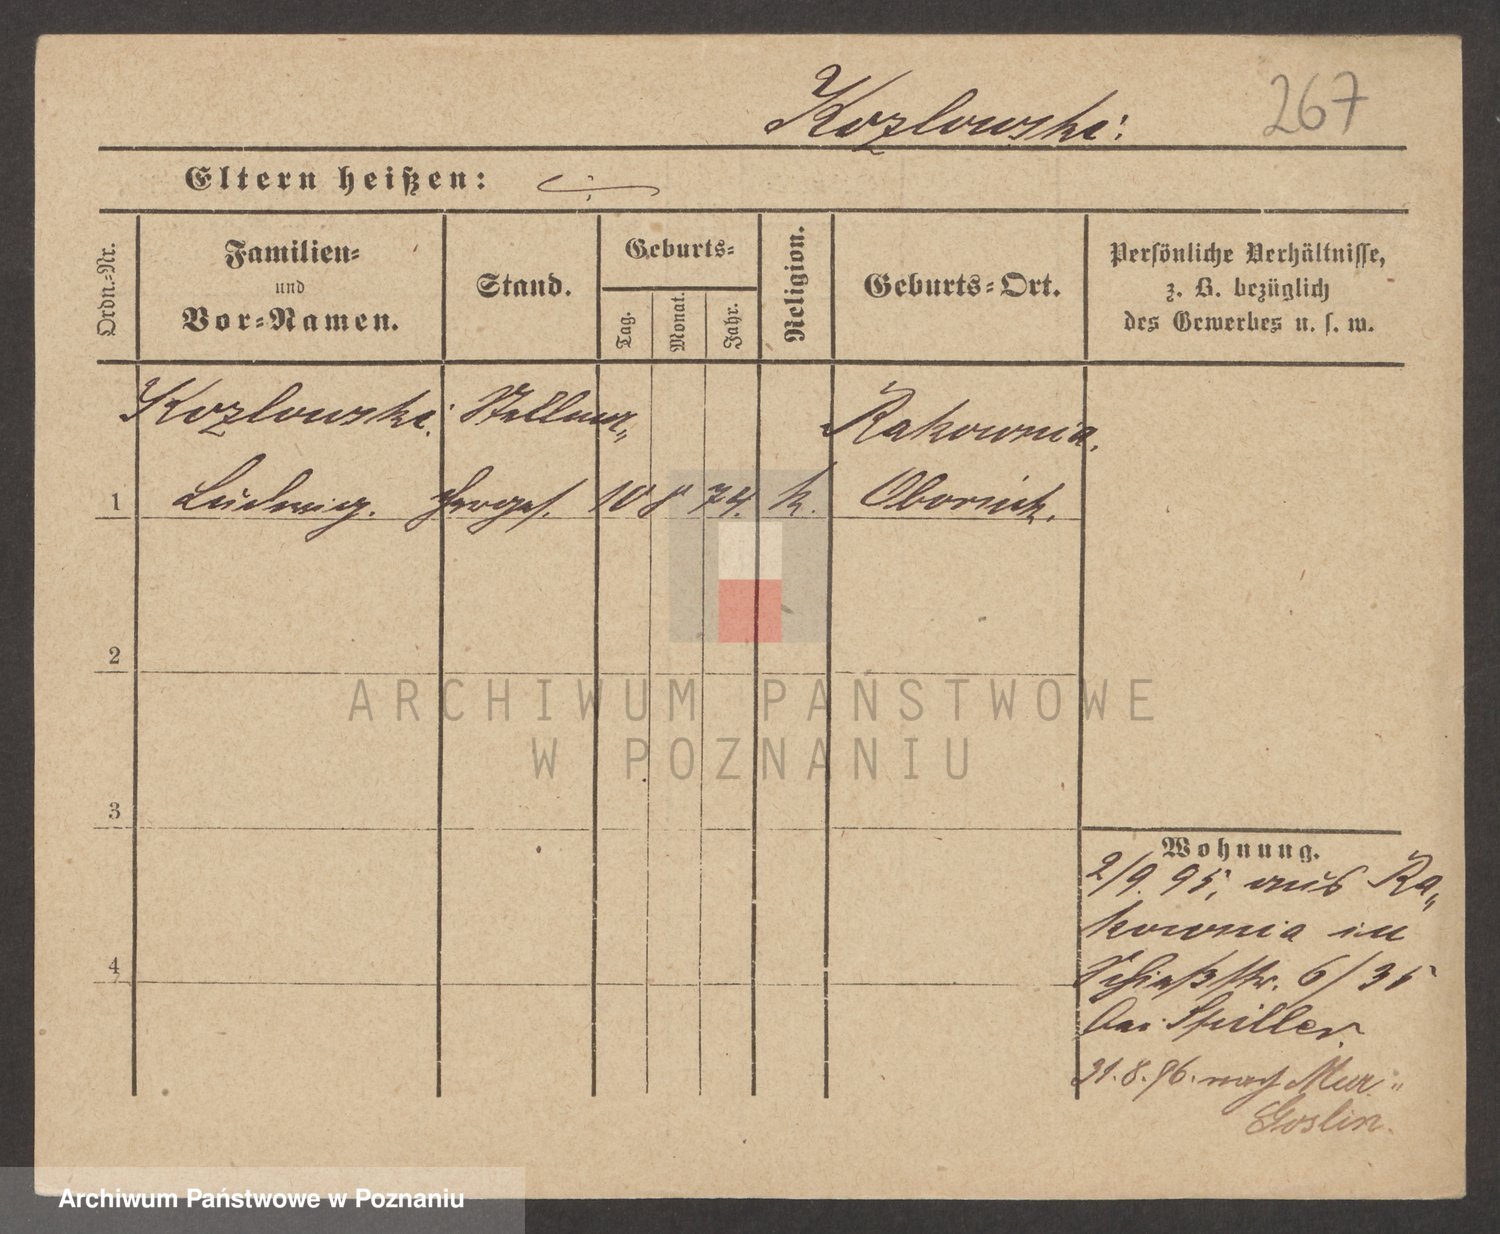 Kozlowski:
267
Eltern heißen:
Ordn.-Nr.
Familien-
und
Vor-Namen.
Stand.
Geburts-
Tag.
Monat.
Jahr.
Religion.
Geburts-Ort.
Persönliche Verhältnisse,
z. B. bezüglich
des Gewerbes u. s. w.
Kozlowski. Stellma- Rakownia,
1 Ludwig. 10 8 74. k. Obornik.
2
3
4
Wohnung.
2/9. 95, aus Ra-
kownia in
Schießstr. 6/35
bei Spiller.
31.8.96. nach Mur.-
Goslin.
ARCHIWUM PAŃSTWOWE
W POZNANIU
Archiwum Państwowe w Poznaniu